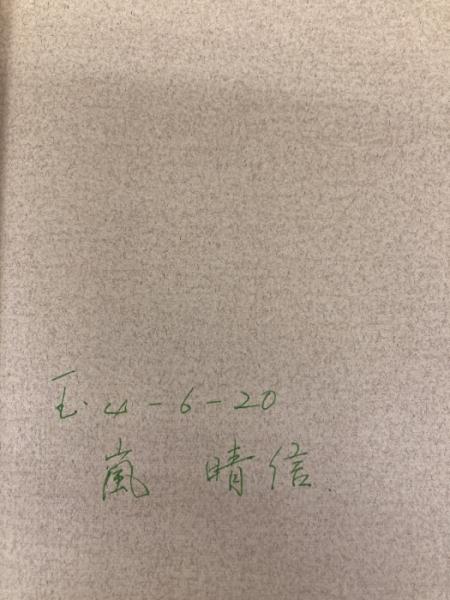 4-6-20
嵐 晴信